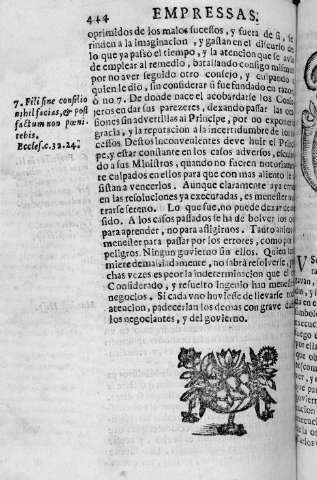 444 EMPRESSAS.
oprimidos de los malos sucessos, y fuera de si, se
rinden a la imaginacion, y gastan en el discurso de
lo que ya passò el tiempo, y la atencion que se avia
de emplear al remedio, batallando consigo mismos
por no aver seguido otro consejo, y culpando a
quien le diò, sin considerar si fue fundado en razon
ò no. 7. De donde nace el acobardarse los Conse-
jeros en dar sus pareceres, dexando passar las oca-
siones sin advertillas al Principe, por no exponer
gracia, y la reputacion a la incertidumbre de los su-
cessos. Destos inconvenientes deve huir el Princi-
pe, y estar constante en los casos adversos, escusan-
do a sus Ministros, quando no fueren notoriamen-
te culpados en ellos para que con mas aliento le as-
sistan a vencerlos. Aunque claramente aya errado
en las resoluciones ya executadas, es menester mos-
trarse sereno. Lo que fue, no puede dexar de aver
sido. A los casos passados se ha de bolver los ojos
para aprender, no para afligirnos. Tanto animo es
menester para passar por los errores, como por los
peligros. Ningun govierno sin ellos. Quien los te-
miere demasiadamente, no sabrà resolverse, y mu-
chas vezes es peor la indeterminacion que el error.
Considerado, y resuelto ingenio han menester los
negocios. Si cada vno huviesse de llevarse toda la
atencion, padecerian los demas con grave daño de
los negociantes, y del govierno.
7. Fili sine consilio
nihil facias, & post
factum non pœni-
tebis.
Eccles. c. 32. 24.